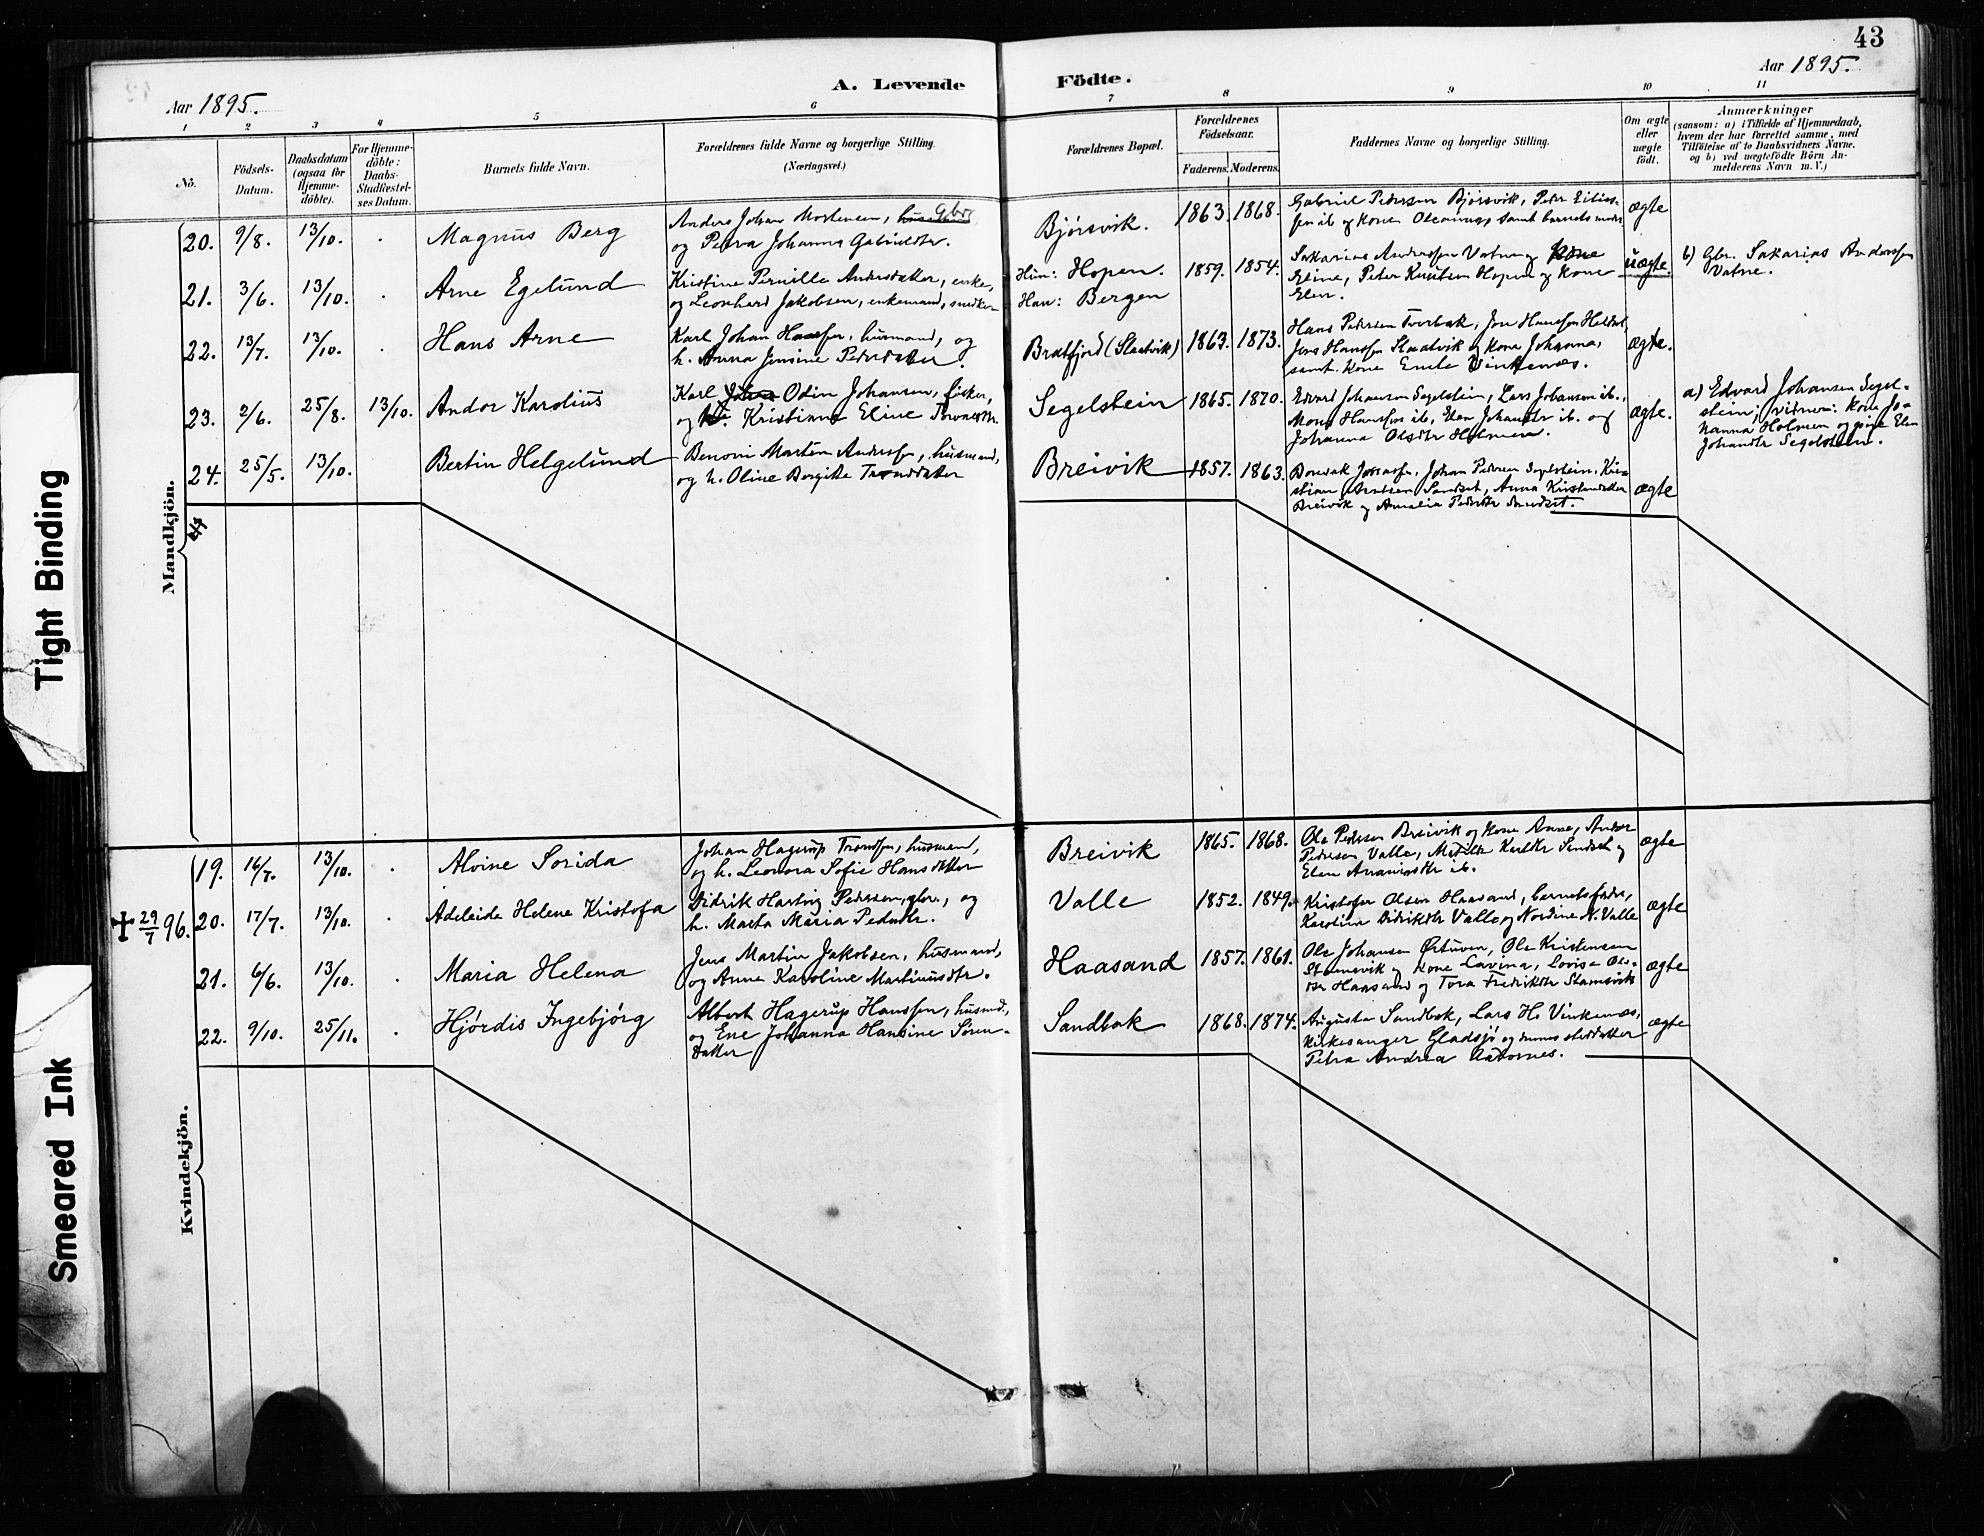 43
Aar 1895.
A. Levende Födte.
Aar 1895.
1 2 3 4 5 6 7 8 9 10 11
No.
Födsels-
Datum.
Daabsdatum
(ogsaa for
Hjemme-
döbte).
For Hjemme-
döbte:
Daabs-
Stadfæstel-
ses Datum.
Barnets fulde Navn.
Forældrenes fulde Navne og borgerlige Stilling.
(Næringsvei.)
Forældrenes Bopæl.
Forældrenes
Födselsaar.
Faderens. Moderens.
Faddernes Navne og borgerlige Stilling.
Om ægte
eller
uægte
födt.
Anmærkninger
(saasom: a) i Tilfælde af Hjemmedaab,
hvem der har forrettet samme, med
Tilföielse af to Daabsvidners Navne.
og b) ved uægtefödte Börn An-
melderens Navn m. V.)
Mandkjön.
20. 9/8. 13/10. . Magnus Berg
Anders Johan Mortensen, Gbr.
og Petra Johanna Gabrieldtr.
Bjørsvik. 1863. 1868.
Gabriel Pedersen Bjørsvik, Peter Elias-
sen ib og kone Oleanna, samt barnets mor
ægte
21. 3/6. 13/10. . Arne Egelund
Kristine Pernille Andersdatter, enke,
og Leonhard Jakobsen, enkemand, snedker
Hun: Hopen.
Han: Bergen
1859. 1854.
Sakarias Andreassen Vatne og kone
Eline, Peter Knutsen Hopen og kone
Elen.
uægte.
b) Gbr. Sakarias Andreassen
Vatne.
22. 13/7. 13/10. . Hans Arne
Karl Johan Hansen, husmand, og
h. Anna Jensine Pedersdatter.
Bratfjord (Slaatvik) 1863. 1873.
Hans Pedersen Tverbak, Jon Hanssen
Jens Hanssen Slaatvik og kone Johanna,
samt kone Emele Vinkenes.
ægte.
23. 2/6. 25/8. 13/10. Andor Karolius
Karl Johan Odin Johansen, fisker,
og h. Kristiane Eline
Segelstein 1865. 1870.
Edvard Johansen Segelstein, Lars Johansen ib.,
Mons Hanssen ib, Elen Johansdtr ib. og
Johanna Olsdtr Holmen.
ægte.
a) Edvard Johansen Segel-
stein; vidner: kone Jo-
hanna Holmen og pige Elen
Johansdtr Segelstein.
24. 25/5. 13/10. Bertin Helgelund
Benoni Martin Anderssen, husmand,
og h. Oline Bergitte Tronddatter
Breivik 1857. 1863.
Johan Pedersen Segelstein, Kri-
stian Sandset, Anna Kristensdatter
Breivik og Amalia Pedersdtr Sandset.
ægte
Kvindekjön.
19. 16/7. 13/10. . Alvine Sorida
Johan Hagerup Trondsen, husmand,
og h. Leonora Sofie Hansdatter
Breivik 1865. 1868.
Ole Pedersen Breivik og kone Anne, Andor
Pedersen Valle, Karldtr Sandset og
Elen ib.
ægte
† 29/7 96. 20. 17/7. 13/10. . Adeleide Helene Kristofa
Didrik Hartvig Pedersen, gbr., og
h. Marta Maria Pedersdtr.
Valle 1852. 1849.
Kristofer Olsen Haasand, barnets fader,
Karoline Didriksdtr Valle og Nordine N. Valle
ægte
21. 6/6. 13/10. . Maria Helena
Jens Martin Jakobsen, husmand,
og Anne Karoline Martinusdtr.
Haasand 1857. 1861.
Ole Johansen Ørtuven, Ole Kristensen
Stamsvik og kone Lavina, Lovise Ols-
dtr Haasand og Tora Fredriksdtr Stamsvik
ægte
22. 9/10. 25/11. . Hjørdis Ingebjørg
Albert Hagerup Hanssen, husmd.,
og Ene Johanna Hansine Søren-
datter
Sandbak 1868. 1874.
Augusta Sandbak, Lars H. Vinkenes,
kirkesanger Gladsjø og dennes steddatter
Petra Andrea Aavornes.
ægte
Tight Binding
Smeared Ink